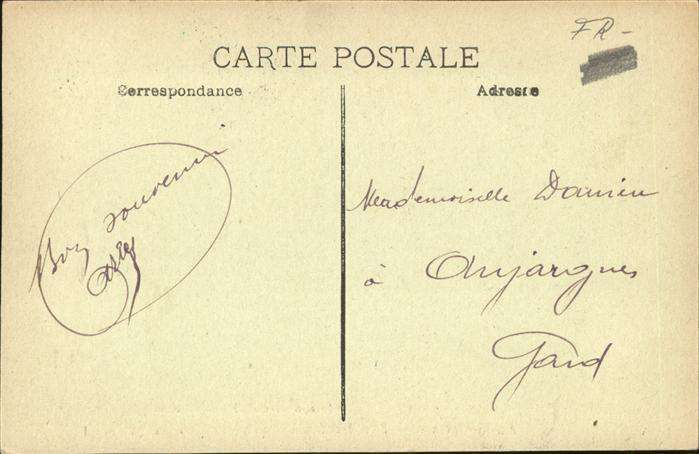 FR-
CARTE POSTALE
Correspondance
Adresse
Bon souvenir
Mademoiselle Damien
à Aujargues
Gard